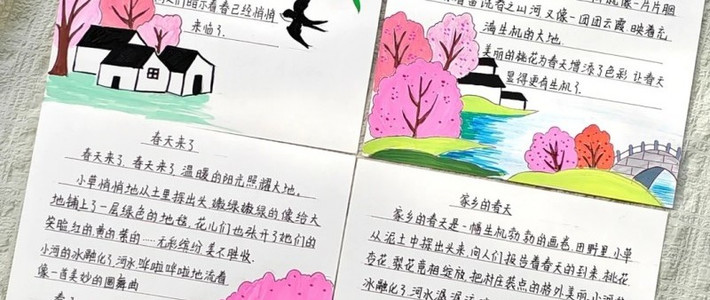 们暗示着春已经悄悄
来临了.
着苗洗脊之山河 又像一团团云霞 映着充
满生机的大地.
美丽的桃花为春天增添了色彩 让春天
显得更有生机了.
春天来了
春天来了 春天来了 温暖的阳光照耀大地.
小草悄悄地从土里探出头 嫩绿嫩绿的像给大
地铺上了一层绿色的地毯, 花儿们也张开了她们的
笑脸红的黄的紫的.....五彩缤纷 美不胜收.
小河的冰融化了 河水哗啦哗啦地流着
像一首美妙的圆舞曲
家乡的春天
家乡的春天是一幅生机勃勃的画卷. 田野里 小草
从泥土中探出头来, 向人们报告着春天的到来. 桃花
杏花 梨花竞相绽放, 把村庄装点的格外美丽. 小河的
冰融化了 河水